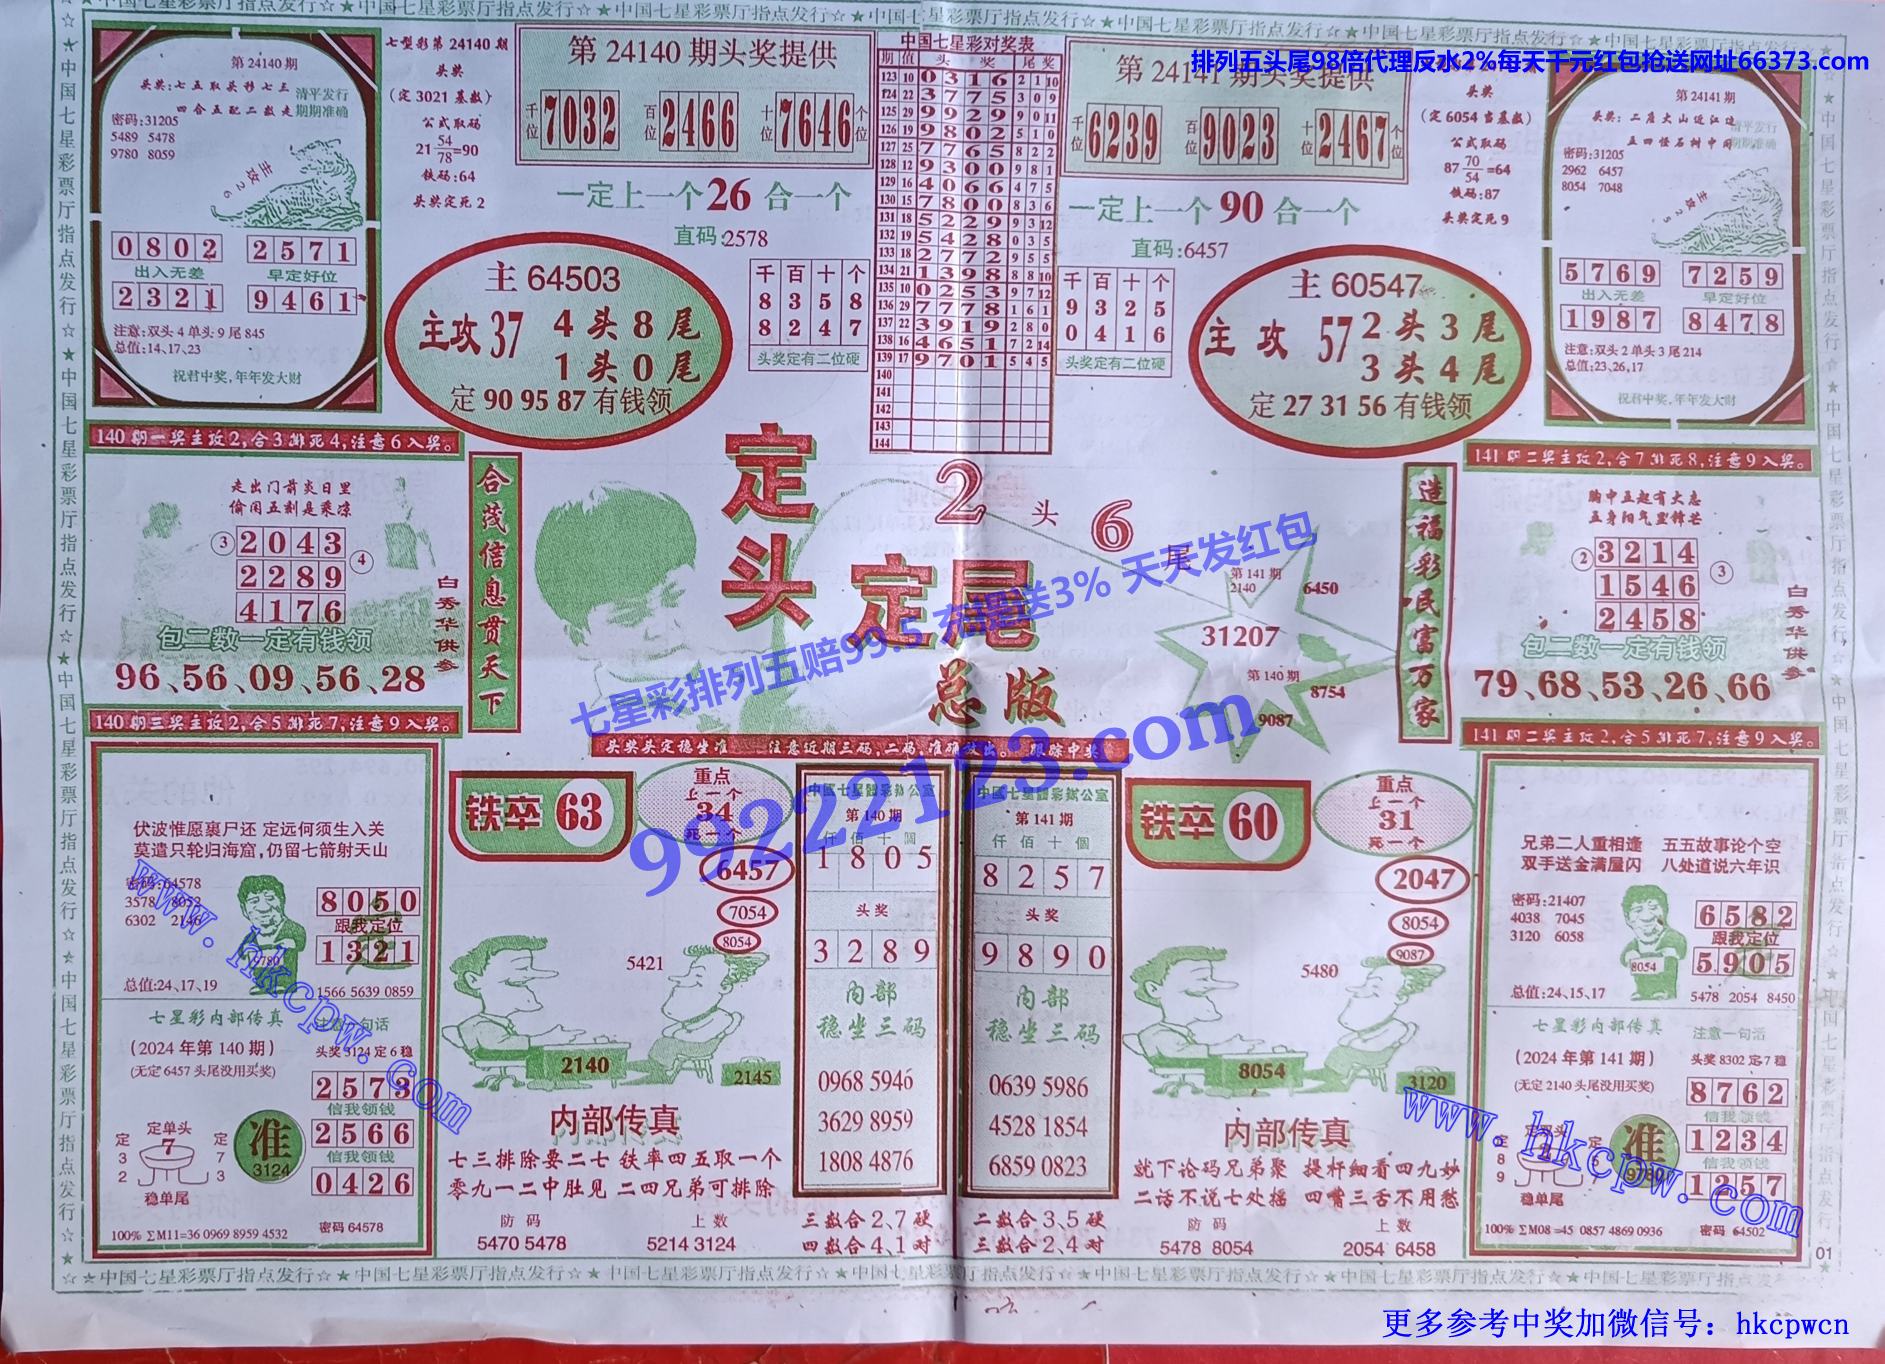 ☆★中国七星彩票厅指点发行☆★中国七星彩票厅指点发行☆★中国七星彩票厅指点发行☆★中国七星彩票厅指点发行☆
排列五头尾98倍代理反水2%每天千元红包抢送网址66373.com
第24140期
头奖:七五取头移七三
四合五配二数走
清平发行
期期准确
密码:31205
5489 5478
9780 8059
主攻26
0802 2571
出入无差 早定好位
2321 9461
注意:双头4单头9尾845
总值:14、17、23
祝君中奖,年年发大财
七型彩第24140期
头奖
(定3021基数)
公式取码
21 54/78=90
铁码:64
头奖定死2
第24140期头奖提供
千位 7032 百位 2466 十位 7646 个位
一定上一个26合一个
直码:2578
主64503
主攻37 4头8尾
1头0尾
定909587有钱领
千百十个
8358
8247
头奖定有二位硬
中国七星彩对奖表
期 值 头奖 尾奖
123 10 0316 2 1 10
124 22 3775 3 0 9
125 29 9929 9 0 11
126 19 9802 5 1 0
127 25 7765 8 2 2
128 12 9300 9 8 1
129 16 4066 4 7 5
130 15 7800 8 3 6
131 18 5229 9 3 12
132 19 5428 0 3 5
133 18 2772 9 5 5
134 21 1398 8 8 10
135 10 0253 9 7 12
136 29 7778 1 6 1
137 22 3919 2 8 0
138 16 4651 7 2 14
139 17 9701 5 4 5
140
141
142
143
144
第24141期头奖提供
千位 6239 百位 9023 十位 2467 个位
一定上一个90合一个
直码:6457
千百十个
9325
0416
头奖定有二位硬
主60547
主攻57 2头3尾
3头4尾
定273156有钱领
头奖
(定6054当基数)
公式取码
87 70/54=64
铁码:87
头奖定死9
第24141期
头奖:二度大山近江边
五四怪石树中间
清平发行
期期准确
密码:31205
2962 6457
8054 7048
5769 7259
出入无差 早定好位
1987 8478
注意:双头2单头3尾214
总值:23、26、17
祝君中奖,年年发大财
140期一奖主攻2,合3排死4,注意6入奖。
走出门前炎日里
偷闲五刻是乘凉
③ 2043
2289 ④
4176
包二数一定有钱领
96、56、09、56、28
白秀华供参
合茂信息贯天下
定头
定尾
总版
2头6尾
第141期
2140
6450
31207
第140期
8754
9087
造福彩民富万家
141期二奖主攻2,合7排死8,注意9入奖。
胸中五起有大志
五身阳气显锋芒
② 3214
1546 ③
2458
包二数一定有钱领
79、68、53、26、66
白秀华供参
七星彩排列五赔99.5 充提送3% 天天发红包
99222123.com
头奖头定稳坐准 注意近期三码、二码、准确放出。 跟踪中奖
140期三奖主攻2,合5排死7,注意9入奖。
伏波惟愿裹尸还 定远何须生入关
莫遣只轮归海窟,仍留七箭射天山
密码:64578
3578 8052
6302 2146
9780
8050
跟我定位
1321
总值:24、17、19
1566 5639 0859
七星彩内部传真 注意一句话
(2024年第140期) 头奖3124定6稳
(无定6457头尾没用买奖)
2573
信我领钱
2566
信我领钱
0426
定单头
7
定32
定73
稳单尾
准
3124
100% ΣM11=36 0969 8959 4532 密码 64578
铁卒63
重点
上一个
34
死一个
6457
7054
8054
5421
2140
2145
内部传真
七三排除要二七 铁率四五取一个
零九一二中肚见 二四兄弟可排除
防码 上数
5470 5478 5214 3124
中國七星體彩辦公室
第140期
仟佰十個
1805
头奖
3289
内部
稳坐三码
0968 5946
3629 8959
1808 4876
三数合2、7硬
四数合4、1对
中國七星體彩辦公室
第141期
仟佰十個
8257
头奖
9890
内部
稳坐三码
0639 5986
4528 1854
6859 0823
二数合3、5硬
三数合2、4对
铁卒60
重点
上一个
31
死一个
2047
8054
9087
5480
8054
3120
内部传真
就下论码兄弟聚 提杆细看四九妙
二话不说七处摇 四嘴三舌不用愁
防码 上数
5478 8054 2054 6458
141期二奖主攻2,合5排死7,注意9入奖。
兄弟二人重相逢 五五故事论个空
双手送金满屋闪 八处道说六年识
密码:21407
4038 7045
3120 6058
8054
6582
跟我定位
5905
总值:24、15、17
5478 2054 8450
七星彩内部传真 注意一句话
(2024年第141期) 头奖8302定7稳
(无定2140头尾没用买奖)
8762
信我领钱
1234
信我领钱
1257
稳单尾
准
9780
100% ΣM08=45 0857 4869 0936 密码 64502
01
www.hkcpw.com
www.hkcpw.com
☆★中国七星彩票厅指点发行☆★中国七星彩票厅指点发行☆★中国七星彩票厅指点发行☆★中国七星彩票厅指点发行☆
更多参考中奖加微信号：hkcpwcn